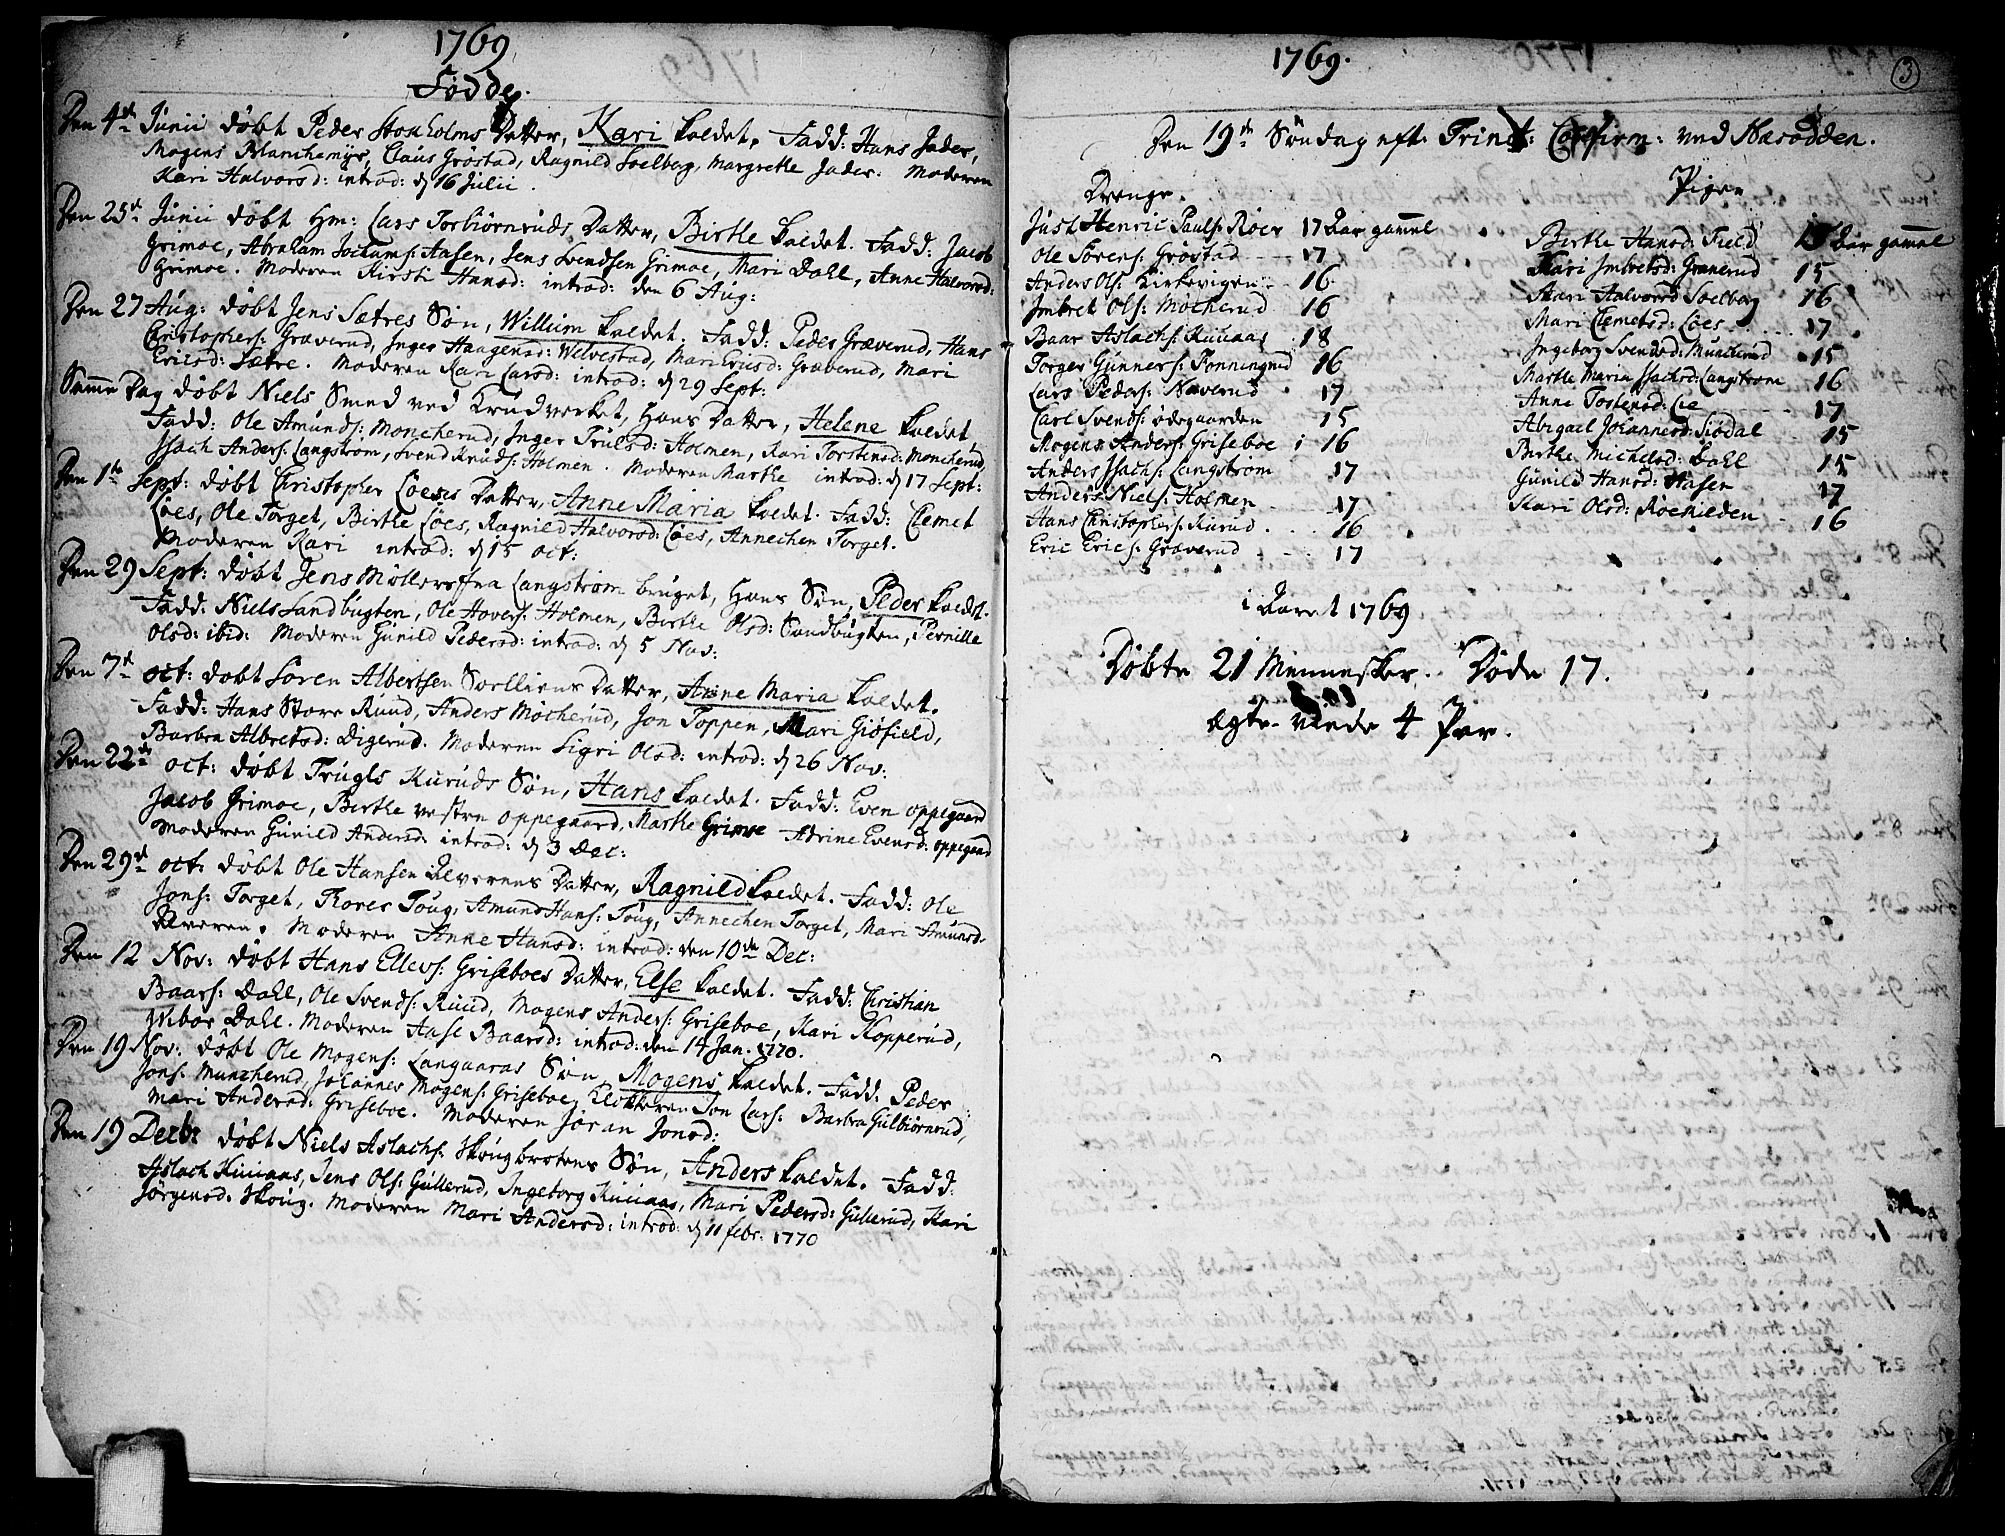 1769
Fødde.
Den 4de Junii døbt Peder Stokholms Datter, Kari kaldet. Fadd: Hans Jader,
Mogens Blanchemyr, Claus Grøstad, Ragnild Soelberg, Margrethe Jader. Moderen
Kari Halvorsd: introd: d 16 Julii.
Den 25de Junii døbt Hm: Lars Torbiørnruds Datter, Birthe kaldet. Fadd: Jacob
Grimoe, Abraham Jochums: Aasen, Jens Svendsen Grimoe, Mari Dahl, Anne Halvorsd:
Grimoe. Moderen Kirsti Hansd: introd: den 6 Aug:
Den 27 Aug: døbt Jens Sætres Søn, Willum kaldet. Fadd: Peder Græverud, Hans
Christophers: Græverud, Inger Haagensd: Welvestad, Mari Ericsd: Græverud, Mari
Ericsd: Sætre. Moderen Kari Larsd: introd: d 29 Sept:
Samme Dag døbt Niels Smed ved Krudverket, Hans Datter, Helene kaldet,
Fadd: Ole Amunds: Moncherud, Inger Trulsd: Holmen, Kari Torstensd: Moncherud,
Isach Anders: Langstrøm, Svend Knuds: Holmen. Moderen Marthe introd: d 17 Sept:
Den 1te Sept: døbt Christopher Løeses Datter, Anne Maria kaldet. Fadd: Clemet
Løes, Ole Torget, Birthe Løes, Ragnild Halvorsd: Løes, Annechen Torget.
Moderen Kari introd: d 15 Oct:
Den 29 Sept: døbt Jens Møllers fra Langstrøm bruget, Hans Søn, Peder kaldet.
Fadd: Niels Sandbugten, Ole Hovers: Holmen, Birthe Olsd: Sandbugten, Pernille
Olsd: ibid: Moderen Gunild Pedersd: introd: d 5 Nov:
Den 7de Oct: døbt Søren Albertsen Soelliens Datter, Anne Maria kaldet.
Fadd: Hans Store Ruud, Anders Mocherud, Jon Toppen, Mari Giøfield,
Barbra Albretsd: Digerud. Moderen Sigri Olsd: introd: d 26 Nov:
Den 22de Oct: døbt Trugls Kuruds Søn, Hans kaldet. Fadd: Even oppegaard
Jacob Grimoe, Birthe vestre oppegaard, Marthe Grimoe Adrine Evensd: oppegaard
Moderen Gunild Andersd: introd: d 3 Dec:
Den 29de Oct: døbt Ole Hansen Ræverens Datter, Ragnild kaldet. Fadd: Ole
Jons: Torget, Thores Toug, Amund Hans: Toug, Annechen Torget, Mari Amunsd:
Ræveren. Moderen Anne Hansd: introd: den 10de Dec:
Den 12 Nov: døbt Hans Ellevs: Griseboes Datter, Else kaldet. Fadd: Christian
Baars: Dahl, Ole Svends: Ruud, Mogens Anders: Griseboe, Kari Kopperud,
Wibor Dahl. Moderen Aase Baarsd: introd: den 14 Jan. 1770.
Den 19 Nov: døbt Ole Mogens: Langaaras Søn, Mogens kaldet. Fadd: Peder
Jons: Muncherud, Johannes Mogens: Griseboe, Klokkeren Jon Lars: Barbra Gulbiørnrud,
Mari Andersd: Griseboe. Moderen Jøran Jonsd:
Den 19 Decbr: døbt Niels Aslachs: Skougbrotens Søn, Anders kaldet. Fadd:
Aslach Kiiaas, Jens Ols: Gullerud, Ingeborg Kiiaas, Mari Pedersd: Gullerud, Kari
Jørgensd: Skoug. Moderen Mari Andersd: introd: d 11 febr. 1770
1769.
3
Den 19de Søndag eft. Trinit: Confirm: ved Nasodden.
Drenge.
Just Henric Pauls: Roer 17 Aar gammel
Ole Sørens: Grøstad 17
Anders Ols: Kirkevigen 16
Imbret Ols: Mocherud 16
Baar Aslachs: Kiiaas 18
Torger Gunners: Tonningrud 16
Lars Peders: Naverud 17
Carl Svends: Ødegaarden 15
Mogens Anders: Griseboe 16
Anders Isachs: Langstrøm 17
Anders Niels: Holmen 17
Hans Christophers: Kurud 16
Eric Erics: Græverud 17
Piger
Birthe Hansd: Field 15 Aar gammel
Kari Imbretsd: Granerud 15
Kari Halvorsd Soelberg 16
Mari Clemetsd: Løes 17
Ingeborg Svendsd: Muncherud 15
Marthe Maria Isachsd: Langstrøm 16
Anne Tostensd: Lie 17
Abigael Johannesd: Siødal 15
Birthe Michelsd: Dahl 15
Gunild Hansd: Aasen 17
Kari Olsd: Røeskilden 16
i Aaret 1769
Døbte 21 Mennesker. Døde 17.
Ægte-viede 4 Par.